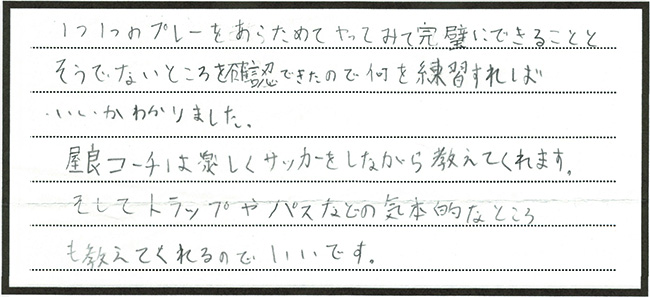 1つ1つのプレーをあらためてやってみて完璧にできることと
そうでないところを確認できたので何を練習すれば
いいかわかりました。
屋良コーチは楽しくサッカーをしながら教えてくれます。
そしてトラップやパスなどの気本的なところ
も教えてくれるのでいいです。